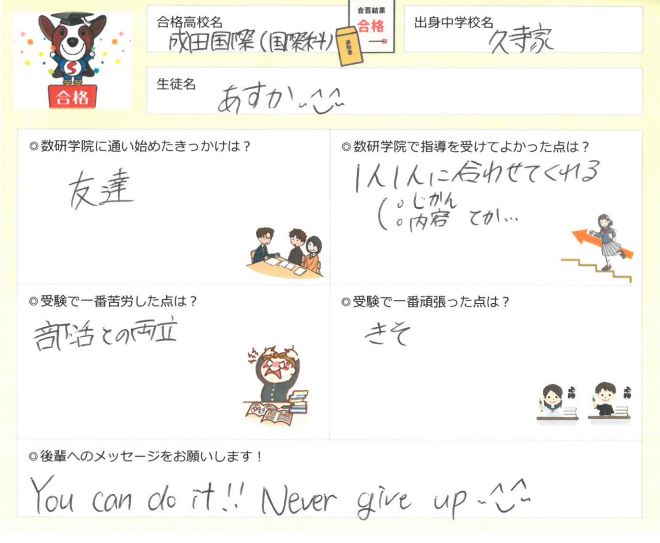 合格高校名
成田国際(国際科)
合否結果
合格
通知書
出身中学校名
久寺家
合格
生徒名
あすか
◎数研学院に通い始めたきっかけは？
友達
◎数研学院で指導を受けてよかった点は？
1人1人に合わせてくれる
(。じかん
。内容 とか…
◎受験で一番苦労した点は？
部活との両立
◎受験で一番頑張った点は？
きそ
必勝 必勝
◎後輩へのメッセージをお願いします！
You can do it!! Never give up